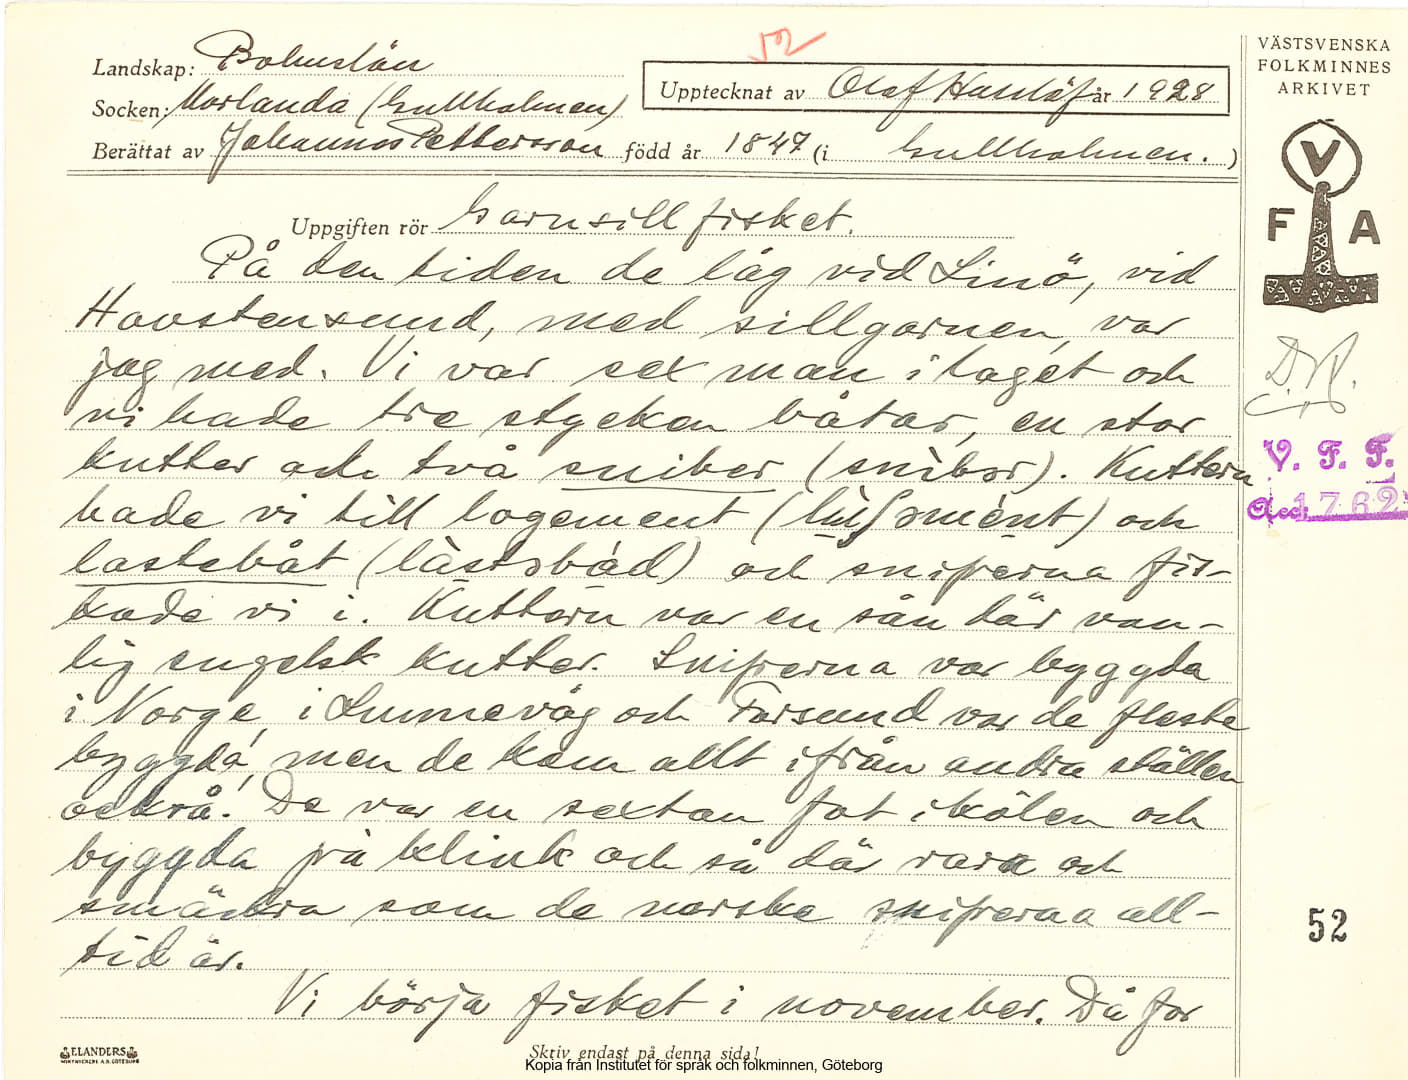 52
Landskap: Bohuslän
Socken: Morlanda (Gullholmen)
Upptecknat av Olof Hasslöf år 1928
Berättat av Johannes Pettersson född år 1847 (i Gullholmen.)
VÄSTSVENSKA
FOLKMINNES
ARKIVET
V
F A
Uppgiften rör Garnsillfisket.
På den tiden de låg vid Linö, vid
Havstensund, med sillgarnen, var
jag med. Vi var sex man i laget och
vi hade tre stycken båtar, en stor
kutter och två sniber (snibər). Kuttern
hade vi till logement () och
lastebåt () och sniperna fis-
kade vi i. Kuttern var en sån där van-
lig engelsk kutter. Sniperna var byggda
i Norge, i Lunnevåg och Farsund var de flesta
byggda, men de kom allt ifrån andra ställen
också. De var en sexton fot i kölen och
byggda på klink och så där rara och
smäckra som de norske sniperna all-
tid är.
Vi börja fisket i november. Då for
V. F. F.
Acc. 1762
52
ELANDERS
Skriv endast på denna sida!
Kopia från Institutet för språk och folkminnen, Göteborg